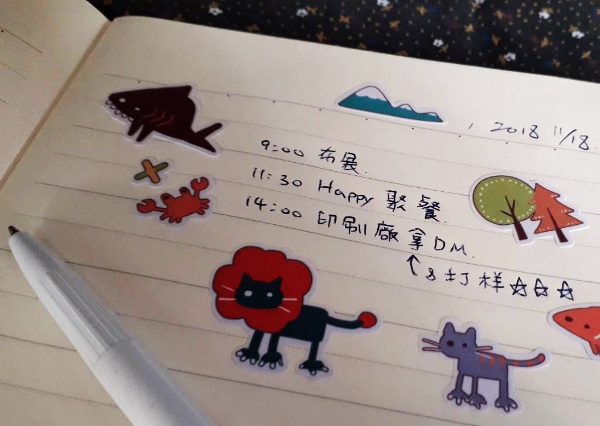 2018 11/18.
9:00 布展.
11:30 Happy 聚餐
14:00 印刷廠拿DM.
↑&打樣☆☆☆